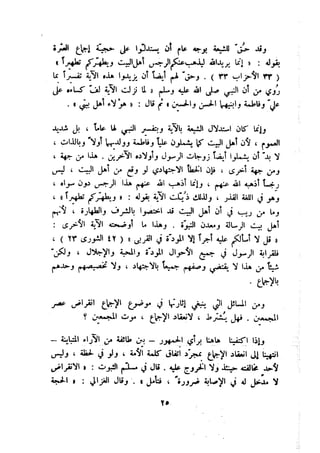 وقد حق للشيعة بوجه عام أن يستدلوا على حجية إجماع العترة
بقوله : « إنما يريد الله ليذهب عنكم الرجس أهل البيت ويطهركم تطهيراً »
( ٣٣ الأحزاب ٣٣ ) . وحق لهم أيضاً أن يؤيدوا هذه الآية تفسيراً بما
روي من أن النبي صلى الله عليه وسلم « لما نزلت الآية لف كساءه على
علي وفاطمة وابنيهما الحسن والحسين » ثم قال : « هؤلاء أهل بيتي » .
وإنما كان استدلال الشيعة بالآية وبتفسير النبي لها عاماً ، بل شديد
العموم ، لأن أهل البيت كما يشملون علياً وفاطمة وولديهما أولاً وبالذات ،
لا بد أن يشملوا أيضاً زوجات الرسول وأولاده الآخرين . هذا من جهة ،
ومن جهة أخرى ، فإن الخطأ الاجتهادي لو وقع من أهل البيت ، ليس
رجساً أذهبه الله عنهم ، وإنما أذهب الله عنهم هذا الرجس دون سواه ،
وهو في اللغة القذر ، ولذلك ذيلت الآية بقوله : « ويطهركم تطهيراً » ،
وما من ريب في أن أهل البيت قد اختصوا بالشرف والطهارة ، لأنهم
أهل بيت الرسالة ومعدن النبوة . وهذا ما أوضحته الآية الأخرى :
« قل لا أسألكم عليه أجراً إلا المودة في القربى » ( ٤٢ الشورى ٢٣ ) ،
فلقرابة الرسول في جميع الأحوال المودة والمحبة والإجلال ، ولكن
شيئاً من هذا لا يقتضي وصفهم جميعاً بالاجتهاد ، ولا تخصيصهم وحدهم
بالإجماع .
ومن المسائل التي ينبغي إثارتها في موضوع الإجماع انقراض عصر
المجمعين . فهل يشترط ، لانعقاد الإجماع ، موت المجمعين ؟
وإذا اكتفينا هاهنا برأي الجمهور – بين طائفة من الآراء المتباينة –
انتهينا إلى انعقاد الإجماع بمجرد اتفاق كلمة الأمة ، ولو في لحظة ، وليس
لأحد مخالفته حينئذ ولا الخروج عليه . قال في مسلم الثبوت : « الانقراض
لا مدخل له في الإصابة ضرورة ، فتأمل » . وقال الغزالي : « الحجة
٢٥